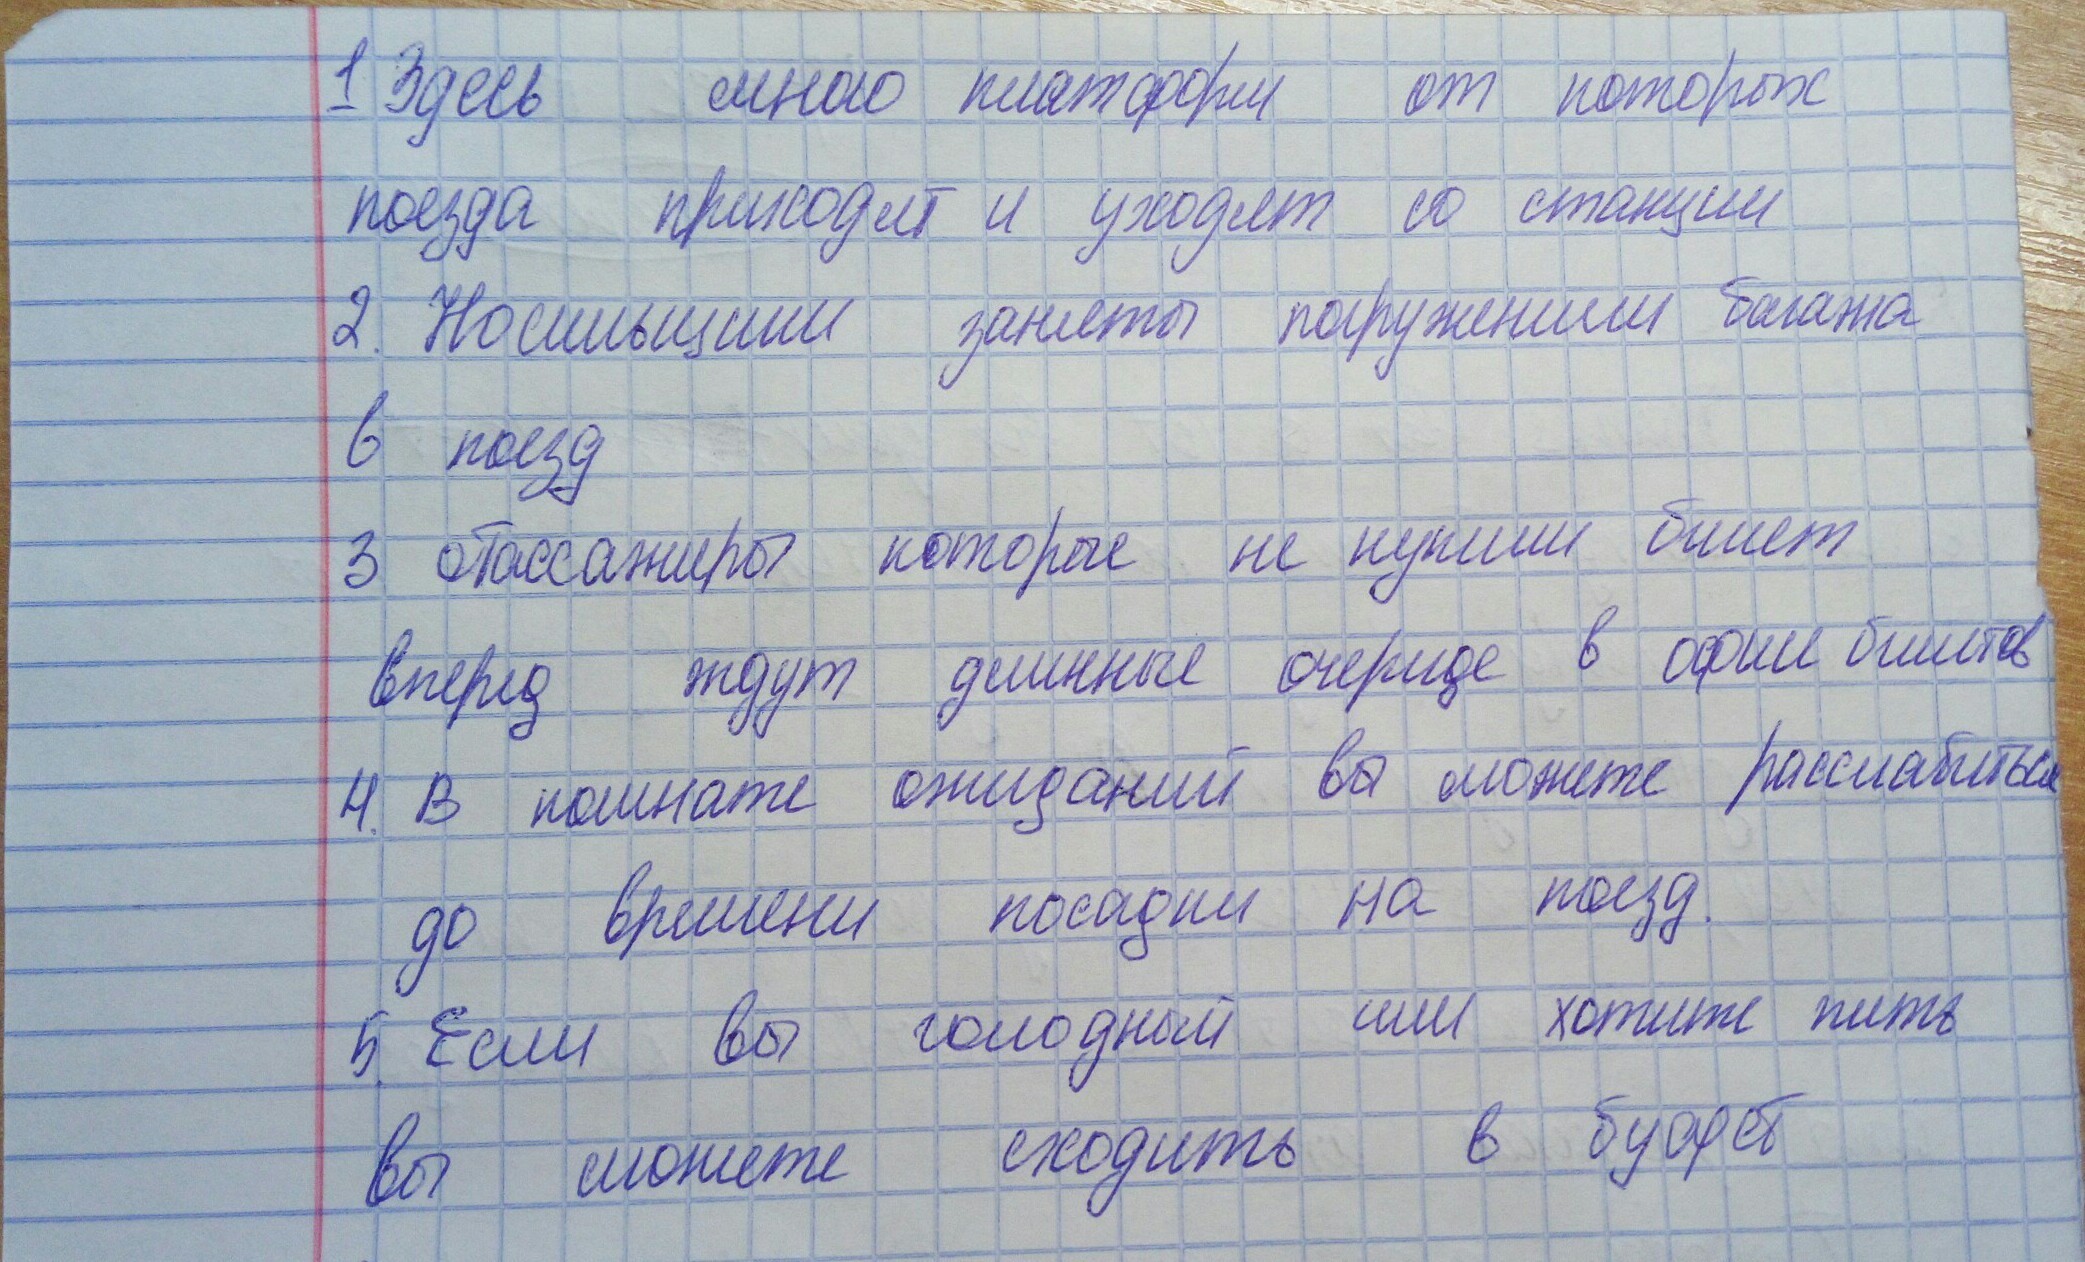 1 Здесь много платформ от которых
поезда приходят и уходят со станции
2. Носильщики заняты погружением багажа
в поезд
3 Пассажиры которые не купили билет
вперед ждут длинные очереде в офис билетов
4. В комнате ожиданий вы можете расслабиться
до времени посадки на поезд.
5. Если вы голодный или хотите пить
вы можете сходить в буфет